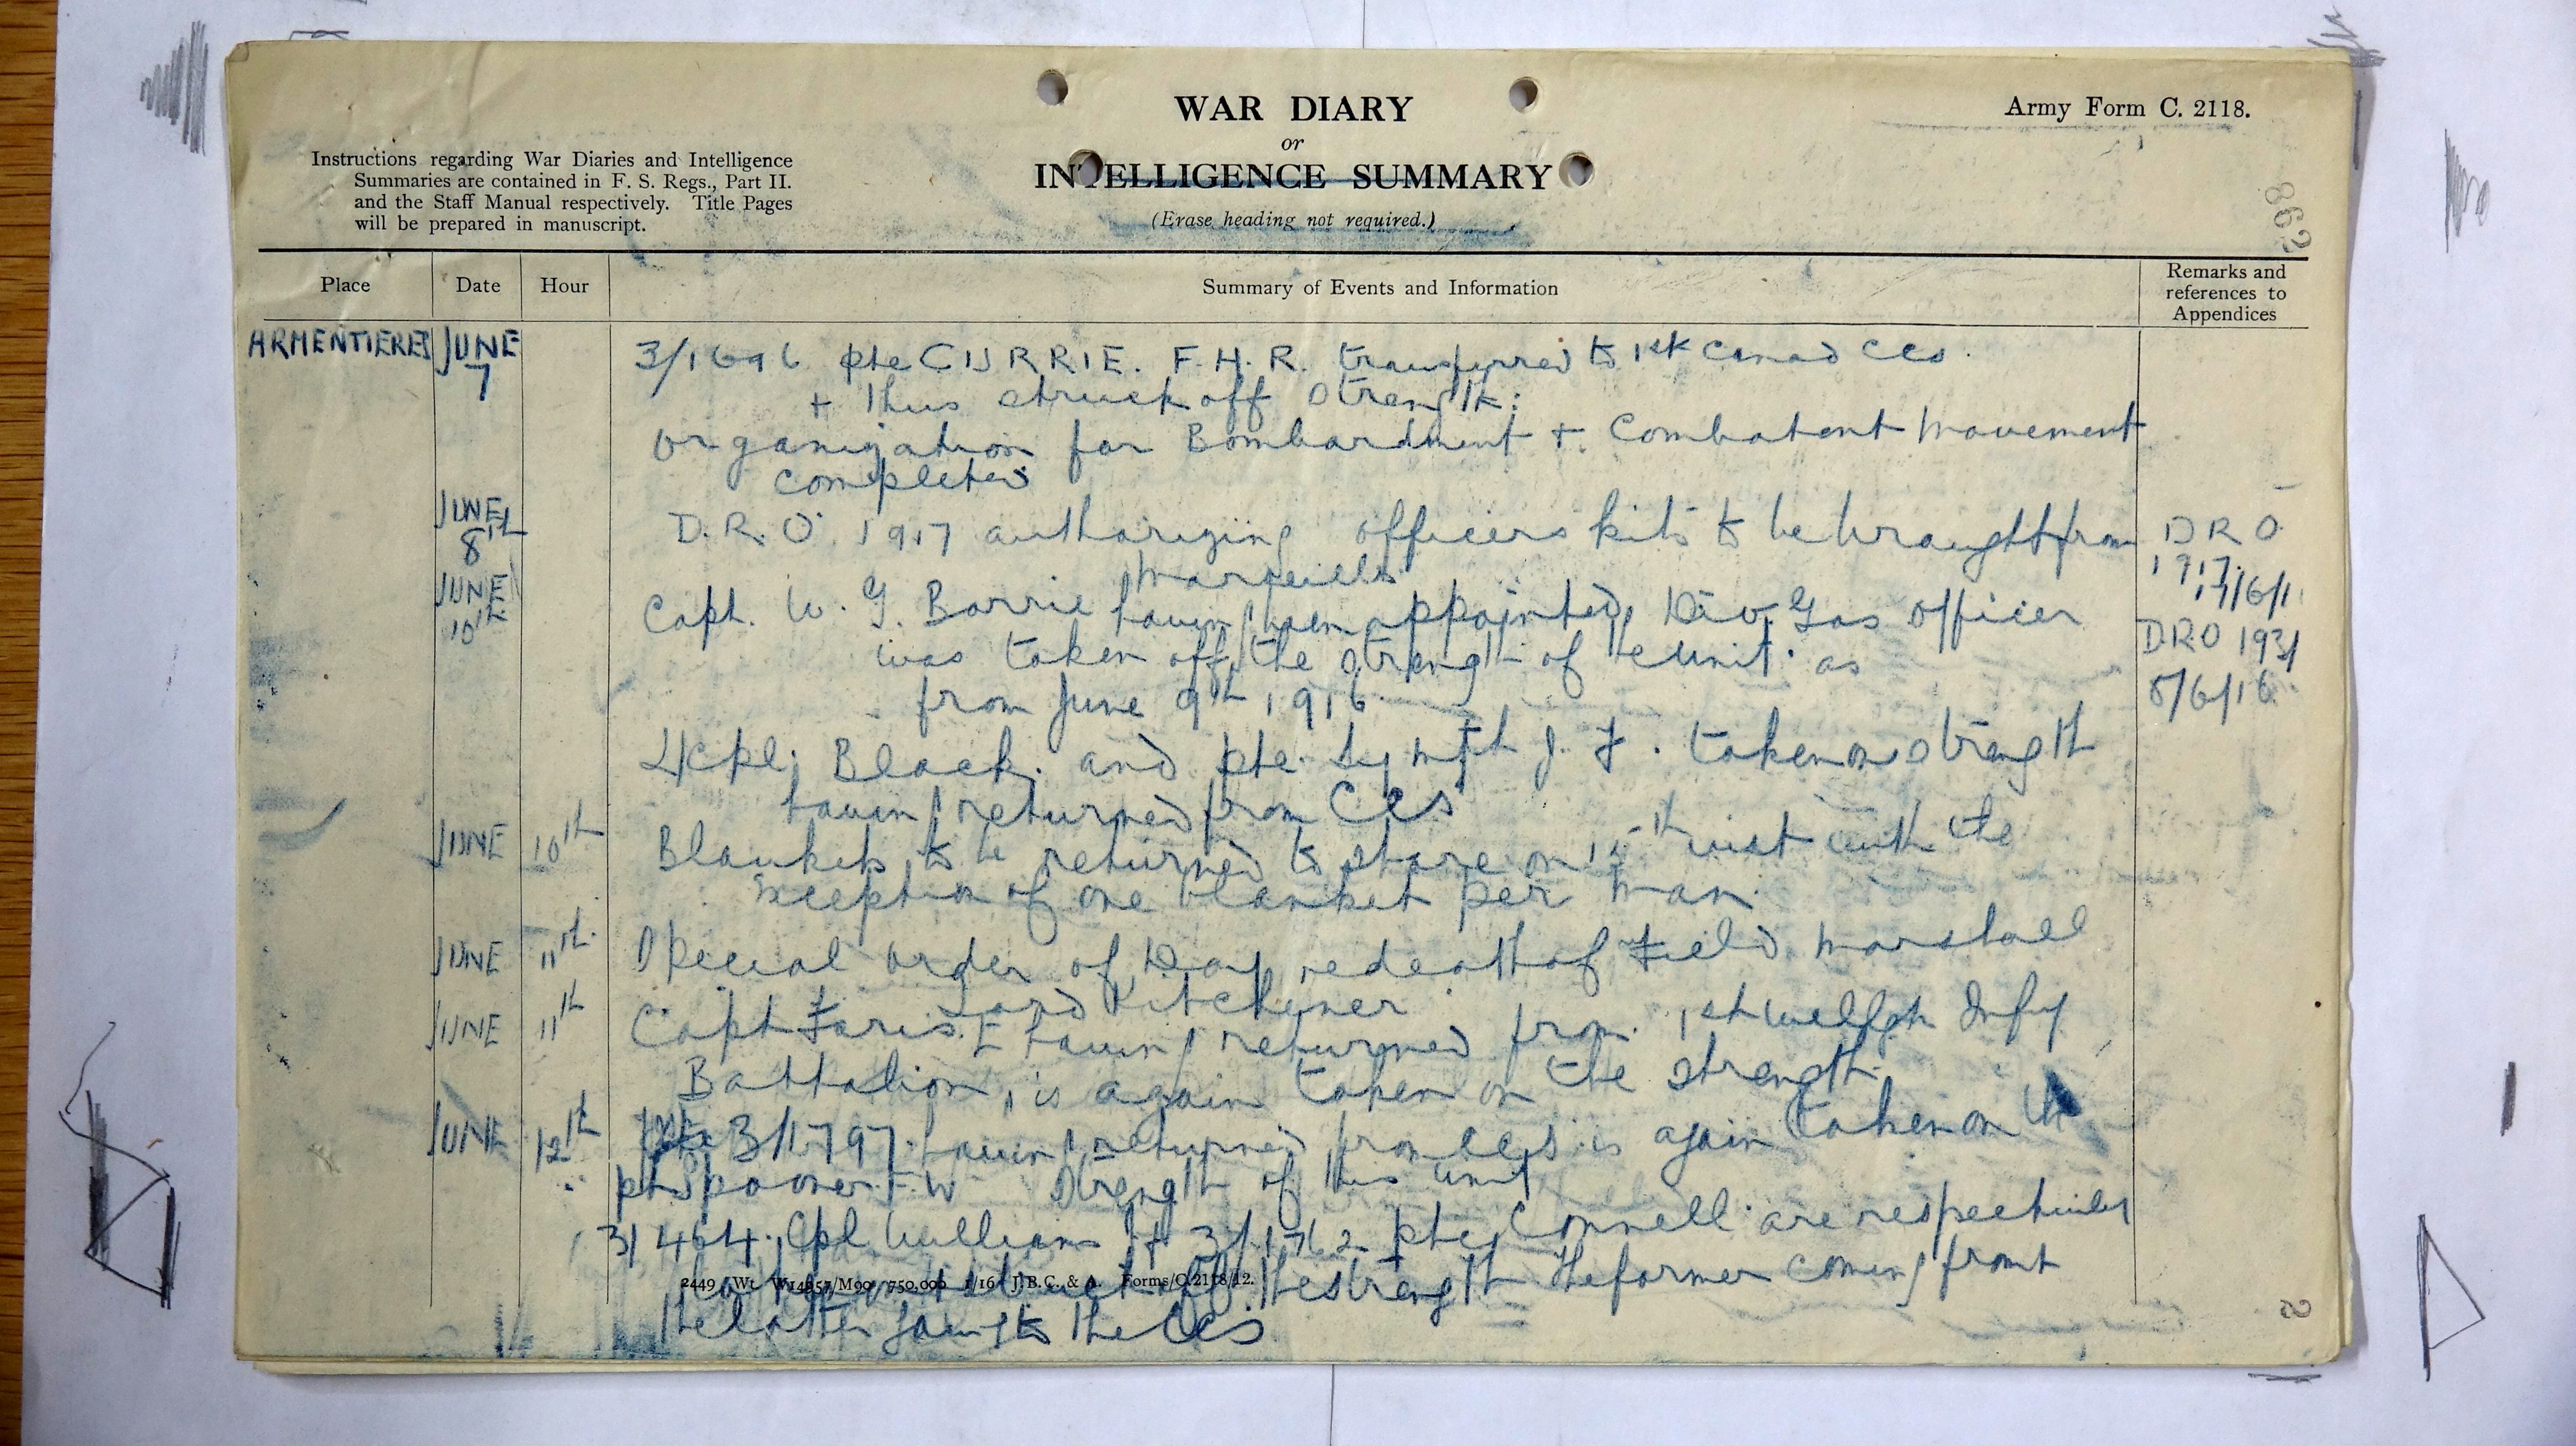 WAR DIARY
or
INTELLIGENCE SUMMARY
(Erase heading not required.)
Army Form C. 2118.
Instructions regarding War Diaries and Intelligence
Summaries are contained in F. S. Regs., Part II.
and the Staff Manual respectively. Title Pages
will be prepared in manuscript.
862
Place Date Hour Summary of Events and Information Remarks and references to Appendices
ARMENTIERES JUNE 7 3/1696 pte CURRIE. F. H. R. transferred to 1st Canad CCS.
+ thus struck off strength:
organization for Bombardment + Combatent movement
completed
JUNE 8th D.R.O. 1917 authorizing officers kits to be brought from D R O
Marseilles 1917.
JUNE 10th Capt. W. G. Barrie having been appointed Div. Gas officer
was taken off the strength of the unit. as D.R.O 1931
from June 9th 1916. 8/6/16.
L/cpl. Black. and pte. J. F. taken on strength
having returned from CCS
JUNE 10th Blankets to be returned to store on inst with the
exception of one blanket per man.
JUNE 11th Special order of Day re death of Field Marshall
Lord Kitchener.
JUNE 11th Capt Faris. E having returned from 1st Infy
Battalion, is again taken on the strength.
JUNE 12th 3/1797. having returned from CCS is again taken on the
pte Spooner F. W strength of this unit
3/464. Cpl William J + 3/1762 pte Connell are respectively
struck off the strength the former coming from
2449 Wt. W14957/M90 750,000 1/16 J.B.C. & A. Forms/C.2118/12.
the latter going to the CCS
2